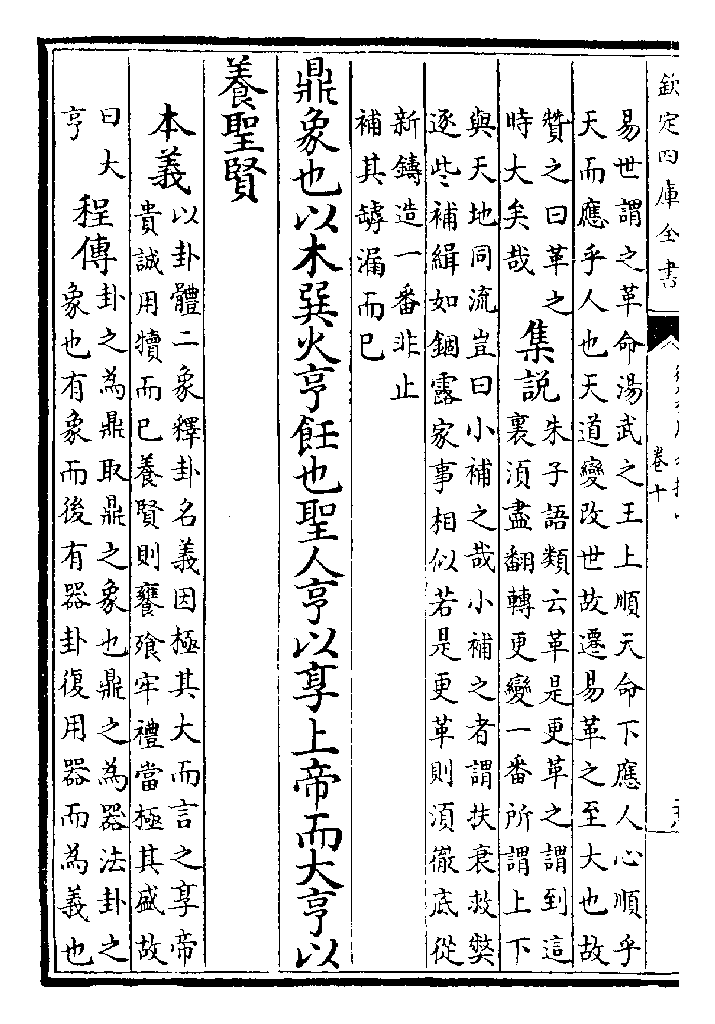 欽定四庫全書
卷十
易世謂之革命湯武之王上順天命下應人心順乎
天而應乎人也天道變改世故遷易革之至大也故
贊之曰革之
時大矣哉
集説
朱子語類云革是更革之謂到這
裏須盡翻轉更變一番所謂上下
與天地同流豈曰小補之哉小補之者謂扶衰救獘
逐些補緝如錮露家事相似若是更革則須徹底從
新鑄造一番非止
補其罅漏而已
鼎象也以木巽火亨飪也聖人亨以享上帝而大亨以
養聖賢
本義
以卦體二象釋卦名義因極其大而言之享帝
貴誠用犢而已養賢則饔飧牢禮當極其盛故
曰大
亨
程傳
卦之為鼎取鼎之象也鼎之為器法卦之
象也有象而後有器卦復用器而為義也